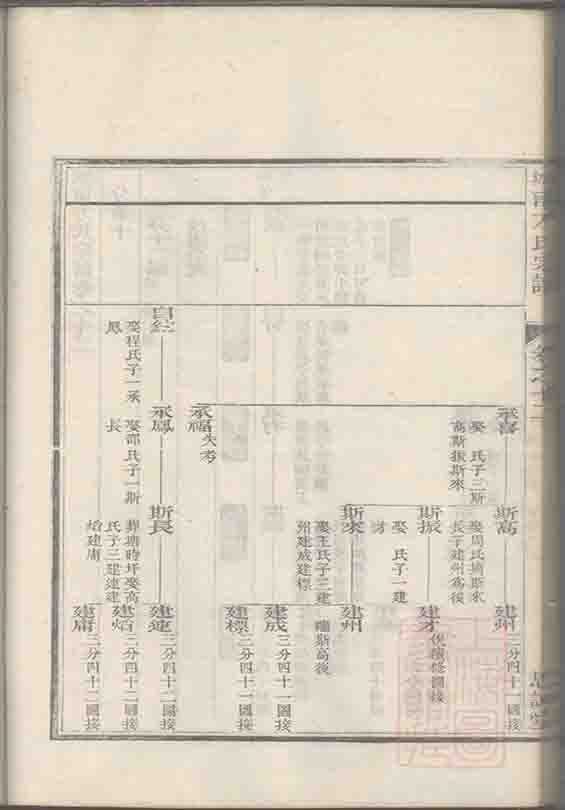 氏宗譜
卷之十二
承喜
娶 氏子三斯
高斯振斯來
承福
失考
自
娶程氏子一承
鳳
承鳳
娶邵氏子一斯
長
斯高
娶周氏撫斯來
長子建州為後
斯振
娶 氏子一建
才
斯來
娶王氏子三建
州建成建標
斯長
葬塘時坪娶高
氏子三建連建
焰建庸
建州
三分四十一圖接
建才
後續修圖接
建州
嗣斯高後
建成
三分四十一圖接
建標
三分四十一圖接
建連
三分四十二圖接
建焰
三分四十二圖接
建庸
三分四十二圖接